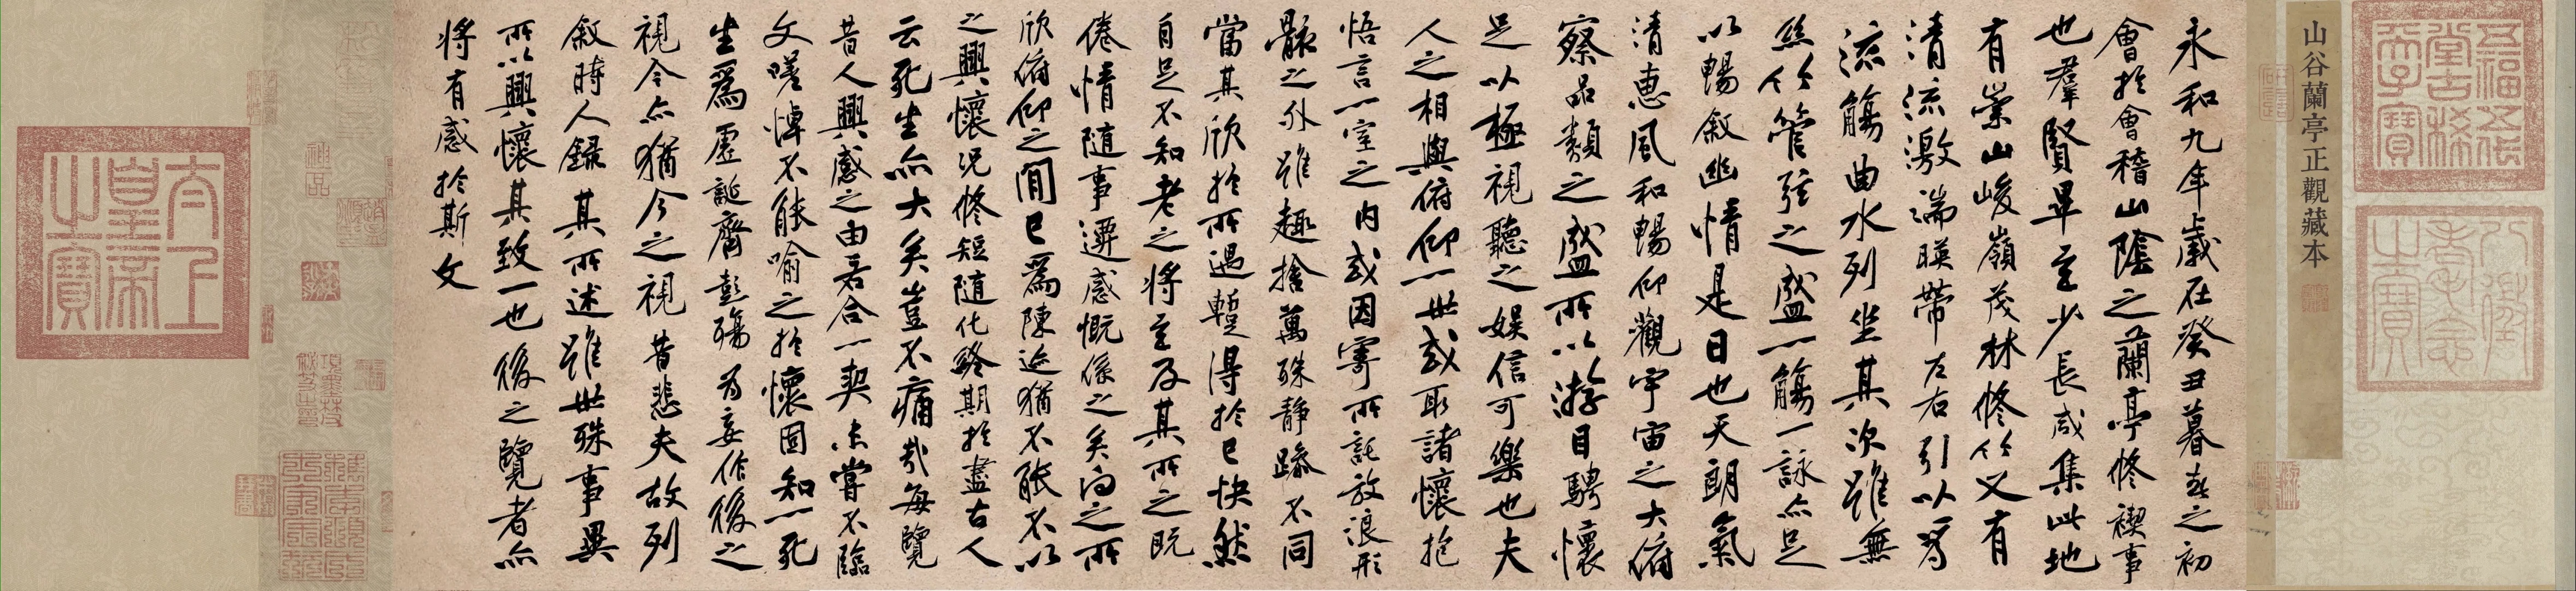 五福五代
堂古稀
天子寶
八徵
耄念
之寶
山谷蘭亭正觀藏本
永和九年歲在癸丑暮春之初
會於會稽山陰之蘭亭修禊事
也羣賢畢至少長咸集此地
有崇山峻嶺茂林修竹又有
清流激湍暎帶左右引以爲
流觴曲水列坐其次雖無
絲竹管弦之盛一觴一詠亦足
以暢敘幽情是日也天朗氣
清惠風和暢仰觀宇宙之大俯
察品類之盛所以遊目騁懷
足以極視聽之娛信可樂也夫
人之相與俯仰一世或取諸懷抱
悟言一室之內或因寄所託放浪形
骸之外雖趣捨萬殊靜躁不同
當其欣於所遇蹔得於己快然
自足不知老之將至及其所之既
倦情隨事遷感慨係之矣向之所
欣俯仰之間已爲陳迹猶不能不以
之興懷況修短隨化終期於盡古人
云死生亦大矣豈不痛哉每覽
昔人興感之由若合一契未嘗不臨
文嗟悼不能喻之於懷固知一死
生爲虛誕齊彭殤爲妄作後之
視今亦猶今之視昔悲夫故列
敘時人錄其所述雖世殊事異
所以興懷其致一也後之覽者亦
將有感於斯文
太上
皇帝
之寶